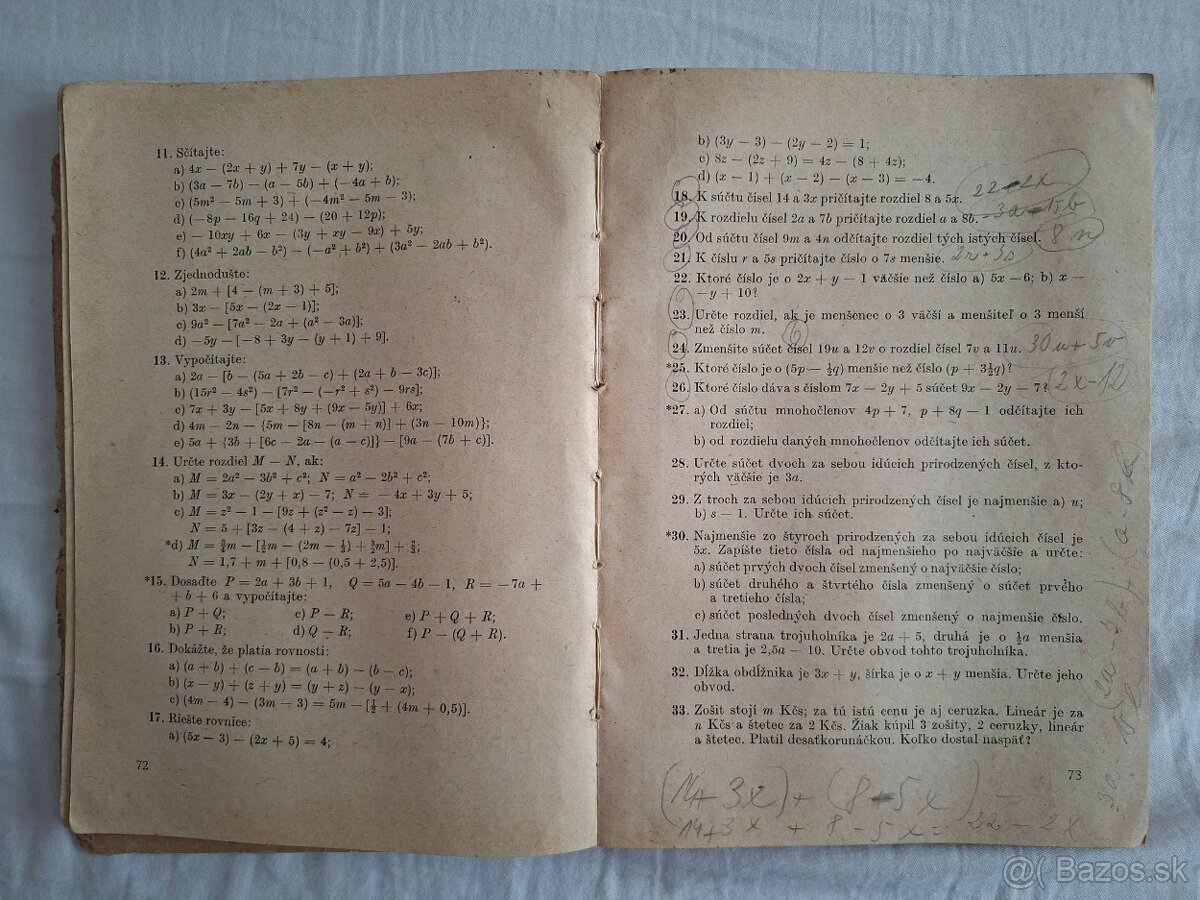 11. Sčítajte:
a) 4x − (2x + y) + 7y − (x + y);
b) (3a − 7b) − (a − 5b) + (−4a + b);
c) (5m² − 5m + 3) + (−4m² − 5m − 3);
d) (−8p − 16q + 24) − (20 + 12p);
e) − 10xy + 6x − (3y + xy − 9x) + 5y;
f) (4a² + 2ab − b²) − (−a² + b²) + (3a² − 2ab + b²).
12. Zjednodušte:
a) 2m + [4 − (m + 3) + 5];
b) 3x − [5x − (2x − 1)];
c) 9a² − [7a² − 2a + (a² − 3a)];
d) −5y − [−8 + 3y − (y + 1) + 9].
13. Vypočítajte:
a) 2a − [b − (5a + 2b − c) + (2a + b − 3c)];
b) (15r² − 4s²) − [7r² − (−r² + s²) − 9rs];
c) 7x + 3y − [5x + 8y + (9x − 5y)] + 6x;
d) 4m − 2n − {5m − [8n − (m + n)] + (3n − 10m)};
e) 5a + {3b + [6c − 2a − (a − c)]} − [9a − (7b + c)].
14. Určte rozdiel M − N, ak:
a) M = 2a² − 3b² + c²; N = a² − 2b² + c²;
b) M = 3x − (2y + x) − 7; N = − 4x + 3y + 5;
c) M = z² − 1 − [9z + (z² − z) − 3];
N = 5 + [3z − (4 + z) − 7z] − 1;
*d) M = ¾m − [½m − (2m − ⅓) + ¾m] + ⅔;
N = 1,7 + m + [0,8 − (0,5 + 2,5)].
*15. Dosaďte P = 2a + 3b + 1, Q = 5a − 4b − 1, R = −7a +
+ b + 6 a vypočítajte:
a) P + Q; c) P − R; e) P + Q + R;
b) P + R; d) Q − R; f) P − (Q + R).
16. Dokážte, že platia rovnosti:
a) (a + b) + (c − b) = (a + b) − (b − c);
b) (x − y) + (z + y) = (y + z) − (y − x);
c) (4m − 4) − (3m − 3) = 5m − [½ + (4m + 0,5)].
17. Riešte rovnice:
a) (5x − 3) − (2x + 5) = 4;
72
b) (3y − 3) − (2y − 2) = 1;
c) 8z − (2z + 9) = 4z − (8 + 4z);
d) (x − 1) + (x − 2) − (x − 3) = −4.
22-2x
18. K súčtu čísel 14 a 3x pričítajte rozdiel 8 a 5x.
19. K rozdielu čísel 2a a 7b pričítajte rozdiel a a 8b. 3a-15b
20. Od súčtu čísel 9m a 4n odčítajte rozdiel tých istých čísel. 8n
21. K číslu r a 5s pričítajte číslo o 7s menšie. 2r+3s
22. Ktoré číslo je o 2x + y − 1 väčšie než číslo a) 5x − 6; b) x −
−y + 10?
23. Určte rozdiel, ak je menšenec o 3 väčší a menšiteľ o 3 menší
než číslo m. 6
24. Zmenšite súčet čísel 19u a 12v o rozdiel čísel 7v a 11u. 30u+5v
*25. Ktoré číslo je o (5p − ½q) menšie než číslo (p + 3½q)?
26. Ktoré číslo dáva s číslom 7x − 2y + 5 súčet 9x − 2y − 7? (2x-12)
*27. a) Od súčtu mnohočlenov 4p + 7, p + 8q − 1 odčítajte ich
rozdiel;
b) od rozdielu daných mnohočlenov odčítajte ich súčet.
28. Určte súčet dvoch za sebou idúcich prirodzených čísel, z kto-
rých väčšie je 3a.
29. Z troch za sebou idúcich prirodzených čísel je najmenšie a) u;
b) s − 1. Určte ich súčet.
*30. Najmenšie zo štyroch prirodzených za sebou idúcich čísel je
5x. Zapíšte tieto čísla od najmenšieho po najväčšie a určte:
a) súčet prvých dvoch čísel zmenšený o najväčšie číslo;
b) súčet druhého a štvrtého čísla zmenšený o súčet prvého
a tretieho čísla;
c) súčet posledných dvoch čísel zmenšený o najmenšie číslo.
31. Jedna strana trojuholníka je 2a + 5, druhá je o ½a menšia
a tretia je 2,5a − 10. Určte obvod tohto trojuholníka.
32. Dĺžka obdĺžnika je 3x + y, šírka je o x + y menšia. Určte jeho
obvod.
33. Zošit stojí m Kčs; za tú istú cenu je aj ceruzka. Lineár je za
n Kčs a štetec za 2 Kčs. Žiak kúpil 3 zošity, 2 ceruzky, lineár
a štetec. Platil desaťkorunáčkou. Koľko dostal naspäť?
73
(14+3x)+(8-5x)=
14+3x+8-5x=22-2x
@( Bazos.sk